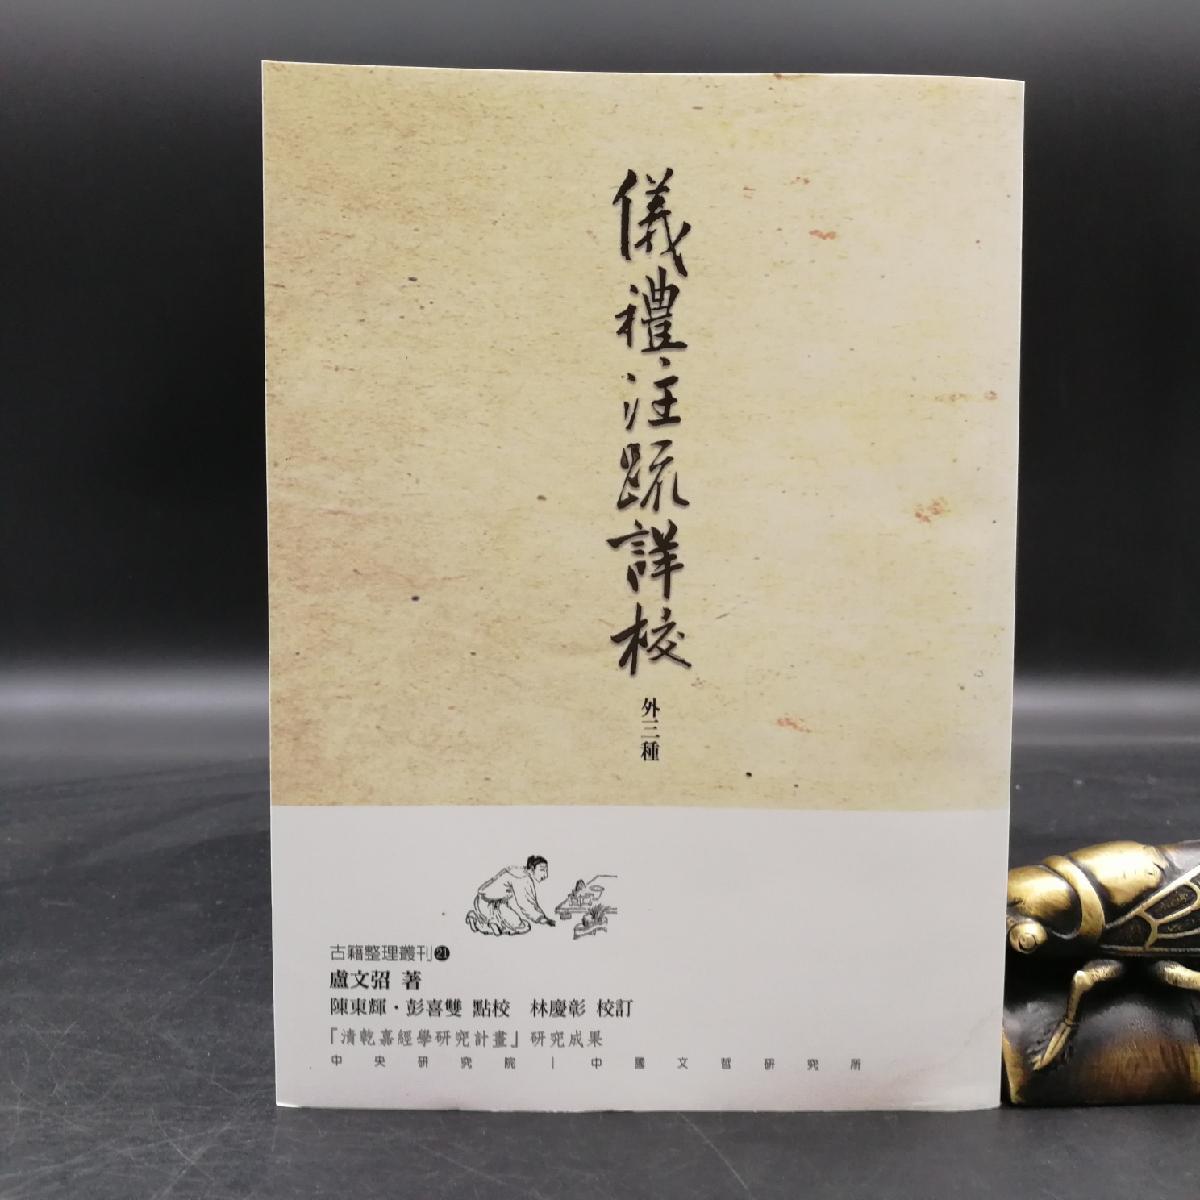 儀禮注疏詳校
外三種
古籍整理叢刊21
盧文弨 著
陳東輝・彭喜雙 點校 林慶彰 校訂
『清乾嘉經學研究計畫』研究成果
中央研究院｜中國文哲研究所